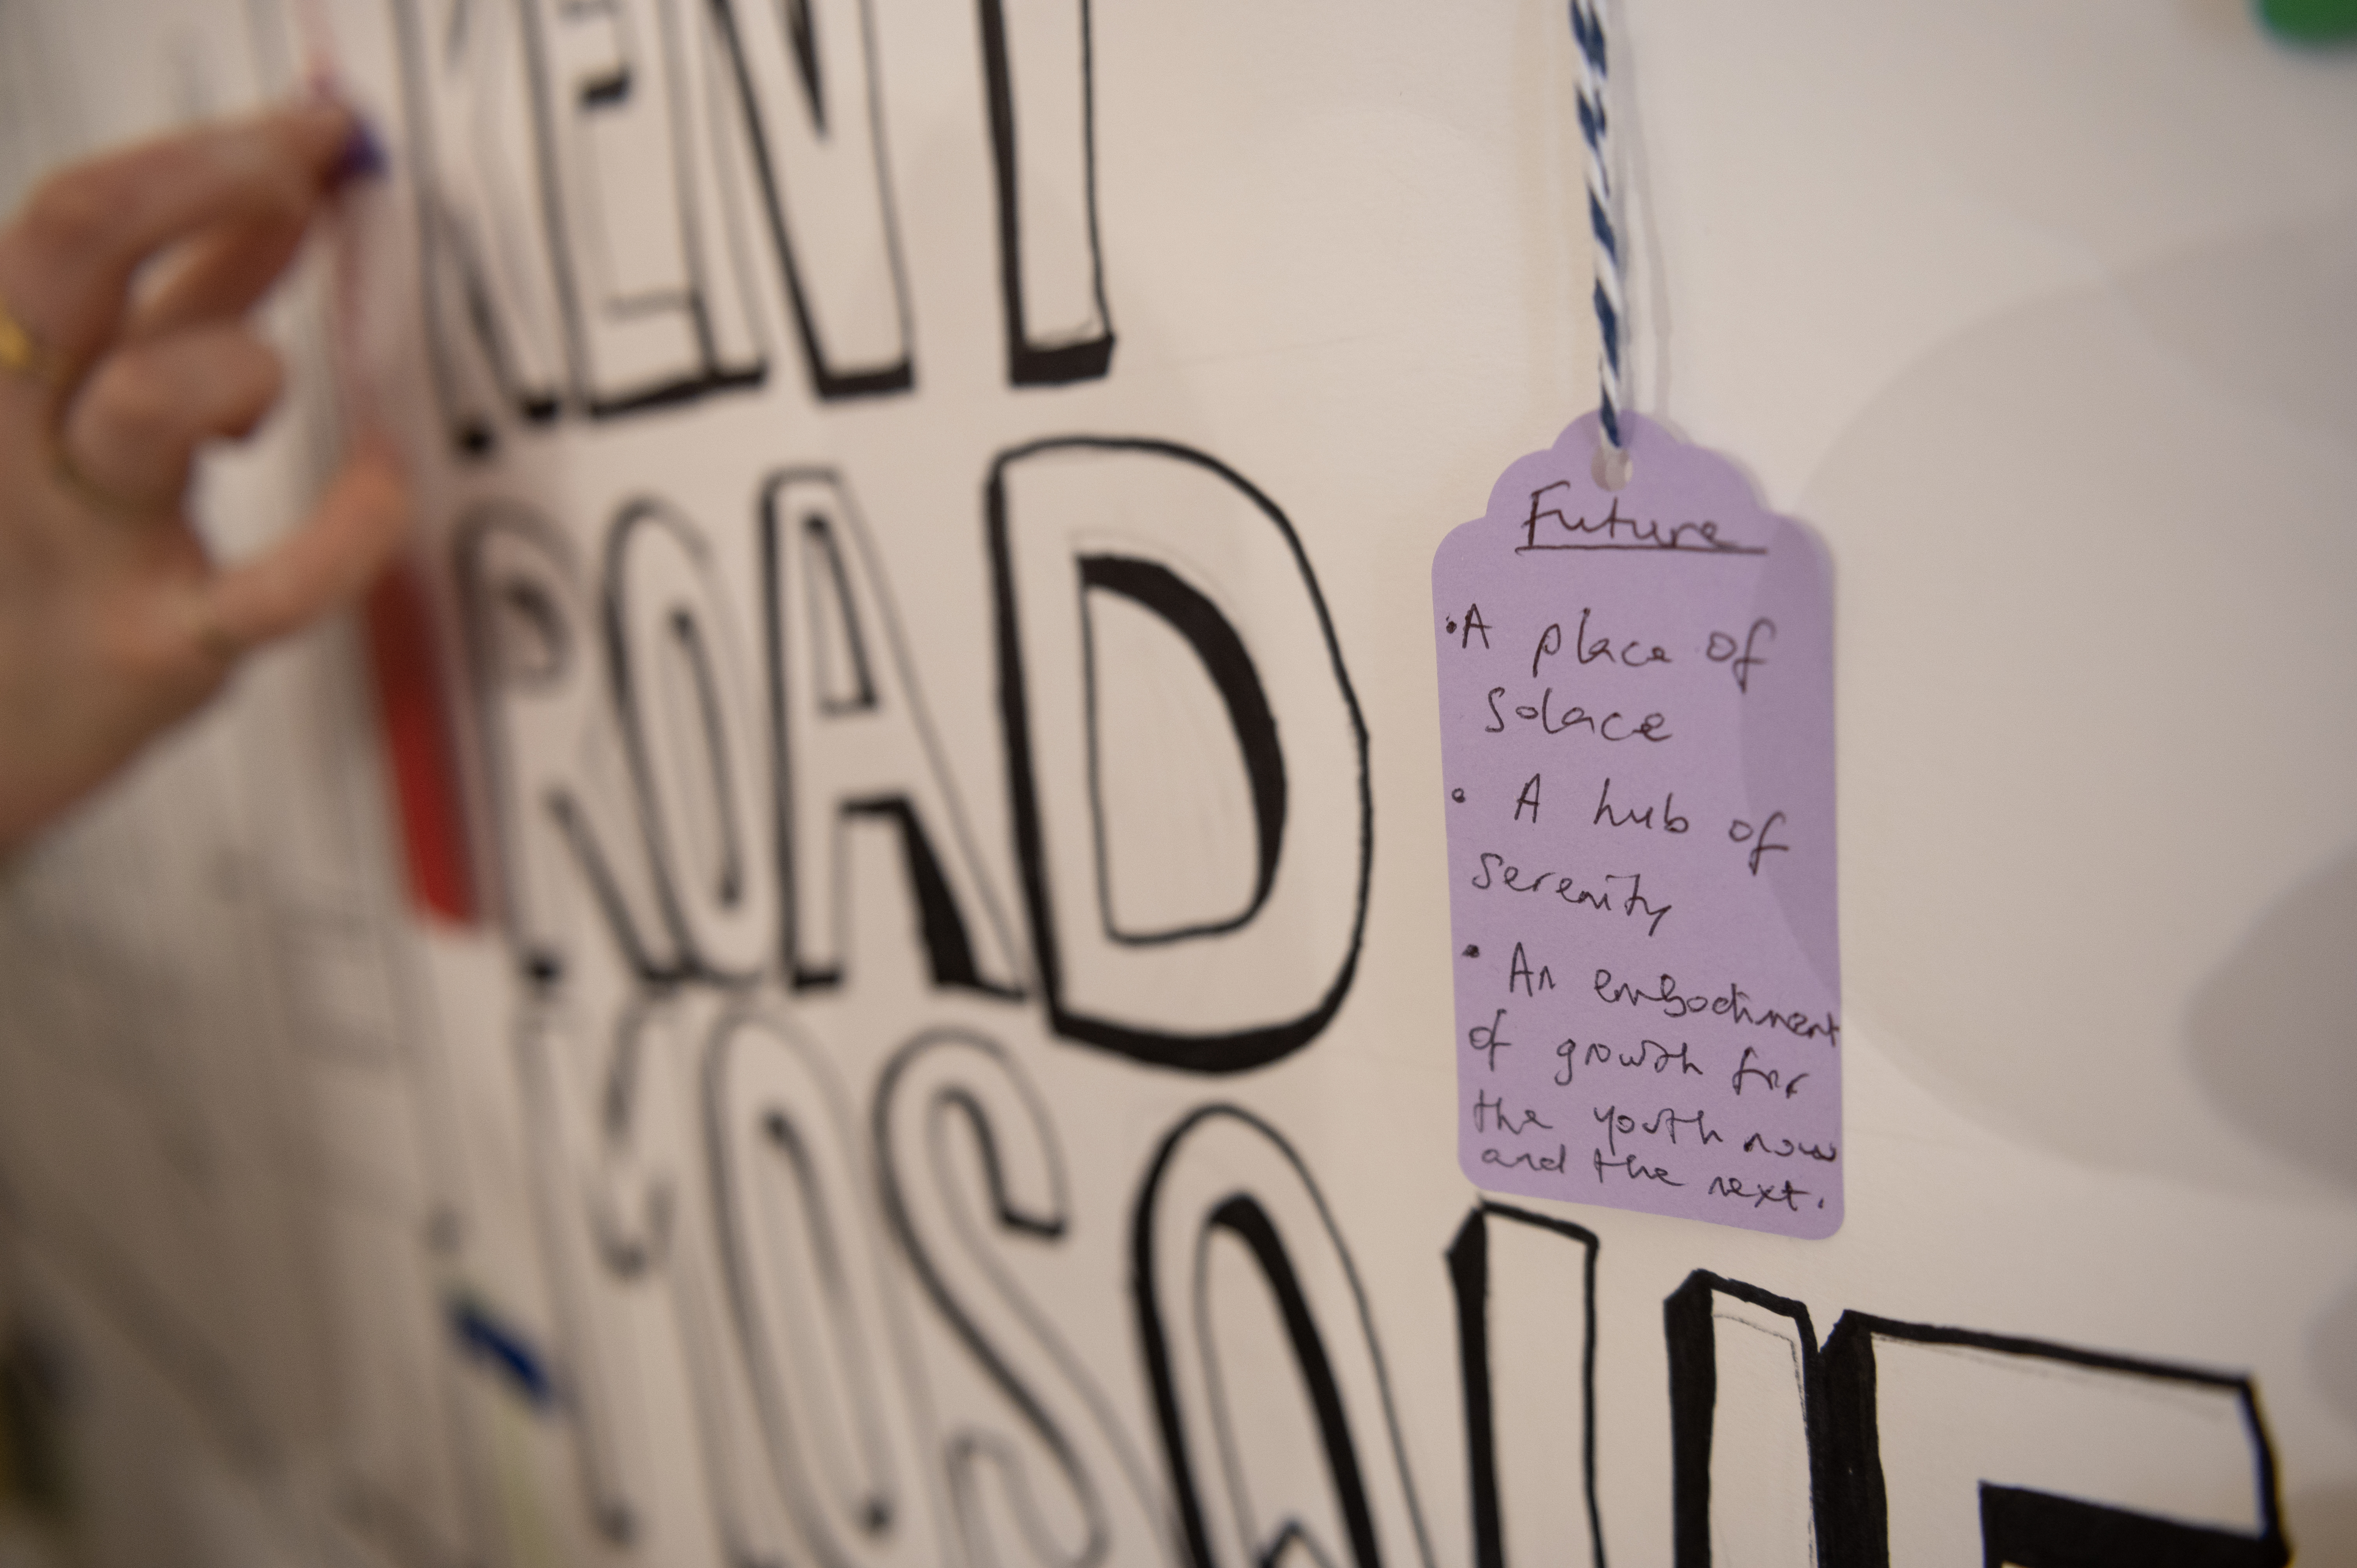 KENT
ROAD
MOSQUE
Future
•A place of
Solace
• A hub of
serenity
• An embodiment
of growth for
the youth now
and the next.